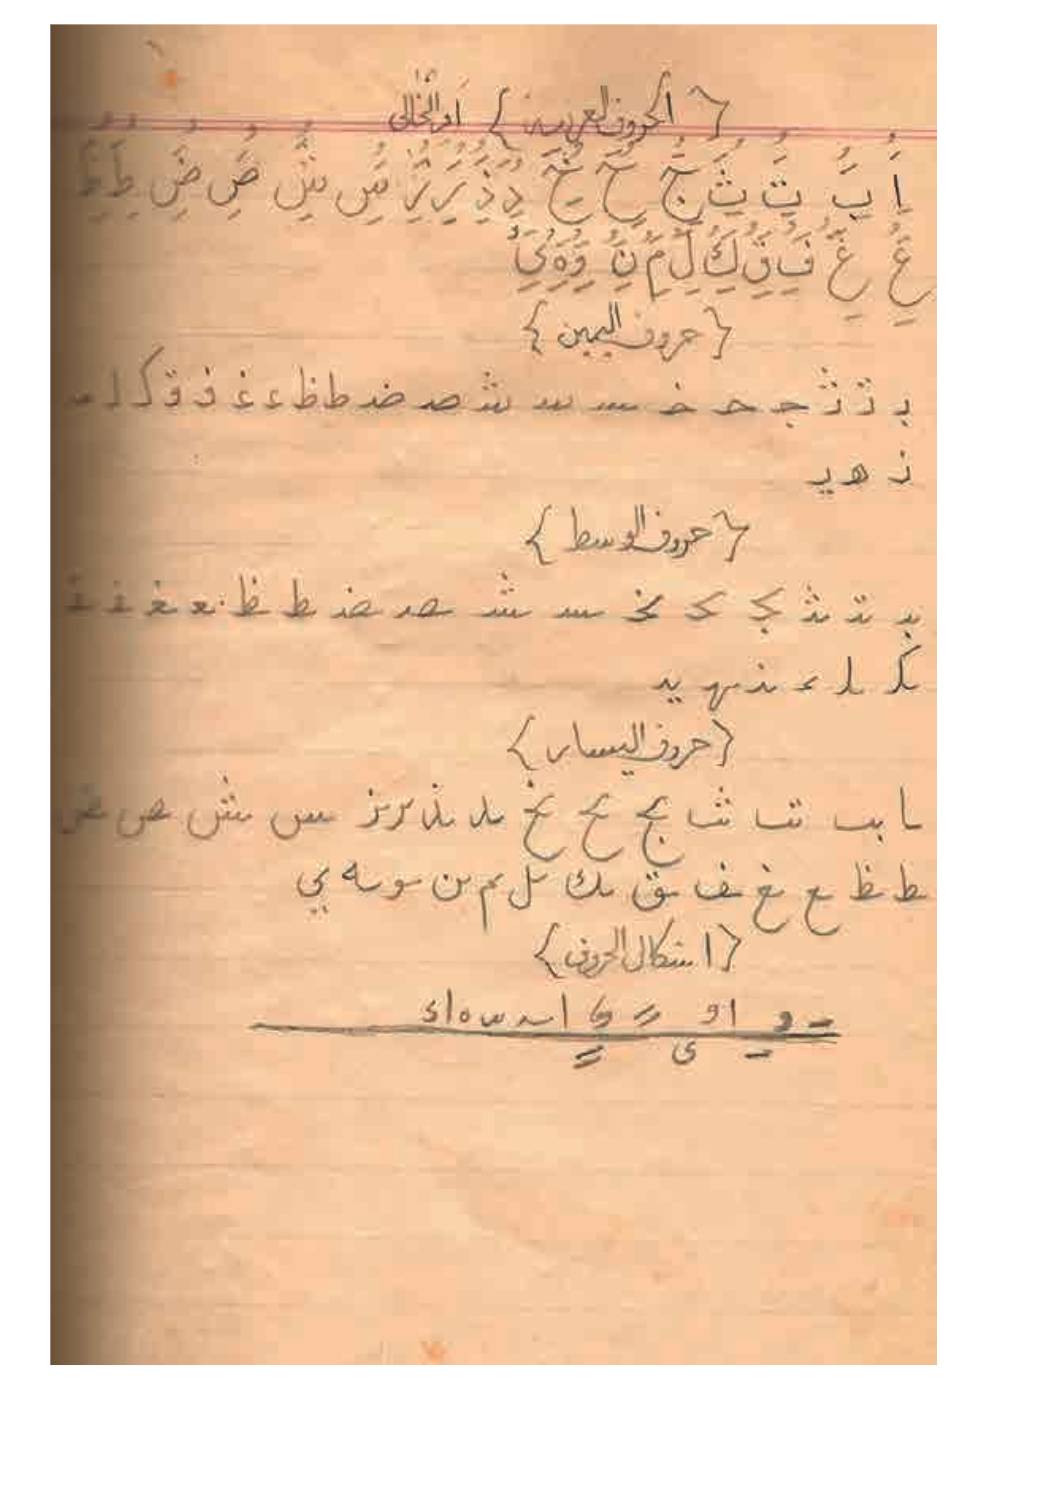 {الحروف العربية}
اَِبَِ تَِ ثَِ جَِ حَِ خَِ دَِ ذَِ رَِ زَِ سَِ شَِ صَِ ضَِ طَِ ظَِ
عَِ غَِ فَِ قَِ كَِ لَِ مَِ نَِ وَِ هَِ يَِ
{حروف اليمين}
بـ تـ ثـ جـ حـ خـ سـ سـ شـ صـ ضـ طـ ظـ عـ غـ فـ قـ كـ لـ مـ
نـ هـ يـ
{حروف الوسط}
ـبـ ـتـ ـثـ ـجـ ـحـ ـخـ ـسـ ـشـ ـصـ ـضـ ـطـ ـظـ ـعـ ـغـ ـفـ ـقـ
ـكـ ـلـ ـمـ ـنـ ـهـ ـيـ
{حروف اليسار}
ـا ـب ـت ـث ـج ـح ـخ ـد ـذ ـر ـز ـس ـش ـص ـض
ـط ـظ ـع ـغ ـف ـق ـك ـل ـم ـن ـو ـه ـي
{اشكال الحروف}